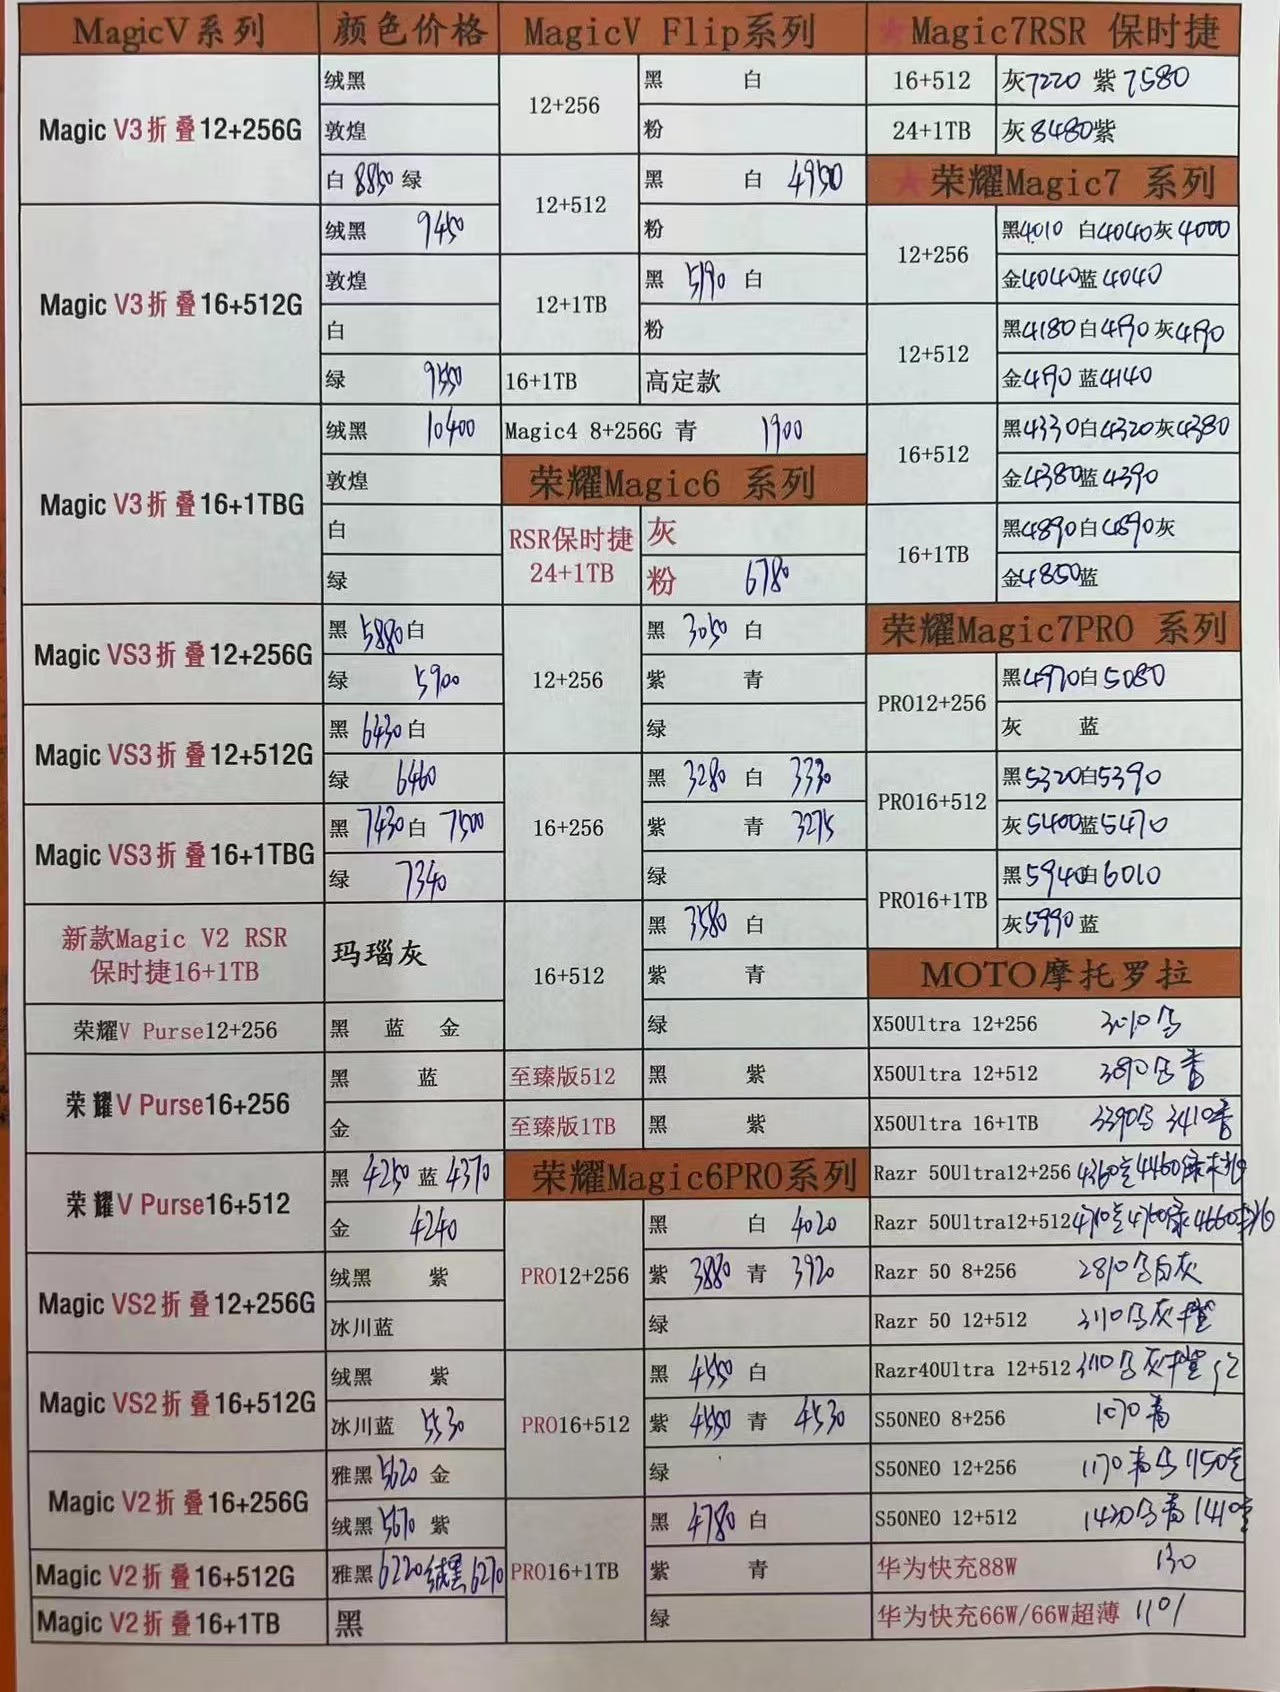 MagicV系列
颜色价格
Magic V3折叠12+256G
绒黑
敦煌
白 8850 绿
Magic V3折叠16+512G
绒黑 9450
敦煌
白
绿 9550
Magic V3折叠16+1TBG
绒黑 10400
敦煌
白
绿
Magic VS3折叠12+256G
黑 5880 白
绿 5900
Magic VS3折叠12+512G
黑 6430 白
绿 6460
Magic VS3折叠16+1TBG
黑 7430 白 7500
绿 7340
新款Magic V2 RSR
保时捷16+1TB
玛瑙灰
荣耀V Purse12+256
黑 蓝 金
荣耀V Purse16+256
黑 蓝
金
荣耀V Purse16+512
黑 4250 蓝 4370
金 4240
Magic VS2折叠12+256G
绒黑 紫
冰川蓝
Magic VS2折叠16+512G
绒黑 紫
冰川蓝 5530
Magic V2折叠16+256G
雅黑 5620 金
绒黑 5670 紫
Magic V2折叠16+512G
雅黑 6220 绒黑 6270
Magic V2折叠16+1TB
黑
MagicV Flip系列
12+256
黑 白
粉
12+512
黑 白 4950
粉
12+1TB
黑 5190 白
粉
16+1TB
高定款
Magic4 8+256G 青 1900
荣耀Magic6 系列
RSR保时捷
24+1TB
灰
粉 6780
12+256
黑 3050 白
紫 青
绿
16+256
黑 3280 白 3330
紫 青 3275
绿
16+512
黑 3580 白
紫 青
绿
至臻版512
黑 紫
至臻版1TB
黑 紫
荣耀Magic6PRO系列
PRO12+256
黑 白 4020
紫 3880 青 3920
绿
PRO16+512
黑 4550 白
紫 4550 青 4530
绿
PRO16+1TB
黑 4780 白
紫 青
绿
★Magic7RSR 保时捷
16+512
灰7220 紫7580
24+1TB
灰8480紫
★荣耀Magic7 系列
12+256
黑4010 白4040灰4000
金4040蓝4040
12+512
黑4180白4190灰4190
金4190蓝4140
16+512
黑4330白4320灰4380
金4380蓝4390
16+1TB
黑4890白4890灰
金4850蓝
荣耀Magic7PRO 系列
PRO12+256
黑4970白5080
灰 蓝
PRO16+512
黑5320白5390
灰5400蓝5470
PRO16+1TB
黑5940白6010
灰5990蓝
MOTO摩托罗拉
X50Ultra 12+256 3010
X50Ultra 12+512 3090
X50Ultra 16+1TB 3390 3410
Razr 50Ultra12+256 4360 4460
Razr 50Ultra12+512 4660
Razr 50 8+256 2810 白灰
Razr 50 12+512 3110 灰
Razr40Ultra 12+512 3110 灰
S50NEO 8+256 1070
S50NEO 12+256 1170 1150
S50NEO 12+512 1420 1410
华为快充88W 130
华为快充66W/66W超薄